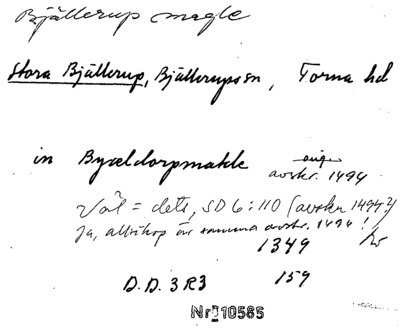 Bjällerup magle
Stora Bjällerup, Bjällerupssn, Torna hd
orig.
in Byældorpmakle avskr. 1494
Väl = dets, SD 6:110 (avskr 1494?)
Ja, alltihop är samma avskr. 1494!
1349
D.D. 3 R3 159
Nr 10585